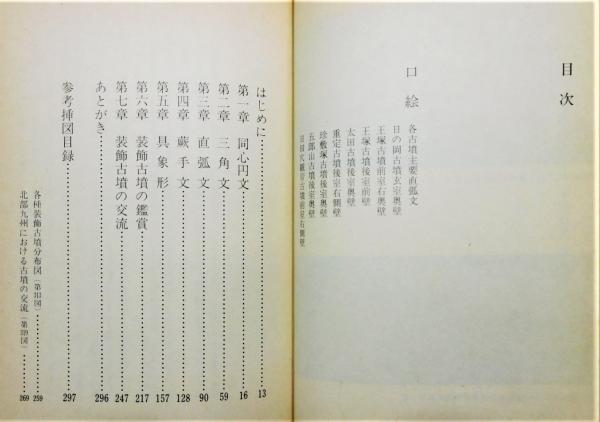 目次
口絵
各古墳主要直弧文
日の岡古墳玄室奥壁
王塚古墳前室右奥壁
王塚古墳後室前壁
太田古墳後室奥壁
重定古墳後室右側壁
珍敷塚古墳後室奥壁
五郎山古墳後室奥壁
はじめに……13
第一章 同心円文……16
第二章 三角文……59
第三章 直弧文……90
第四章 蕨手文……128
第五章 具象形……157
第六章 装飾古墳の鑑賞……217
第七章 装飾古墳の交流……247
あとがき……296
参考挿図目録……297
各種装飾古墳分布図(第113図)……259
北部九州における古墳の交流(第119図)……269